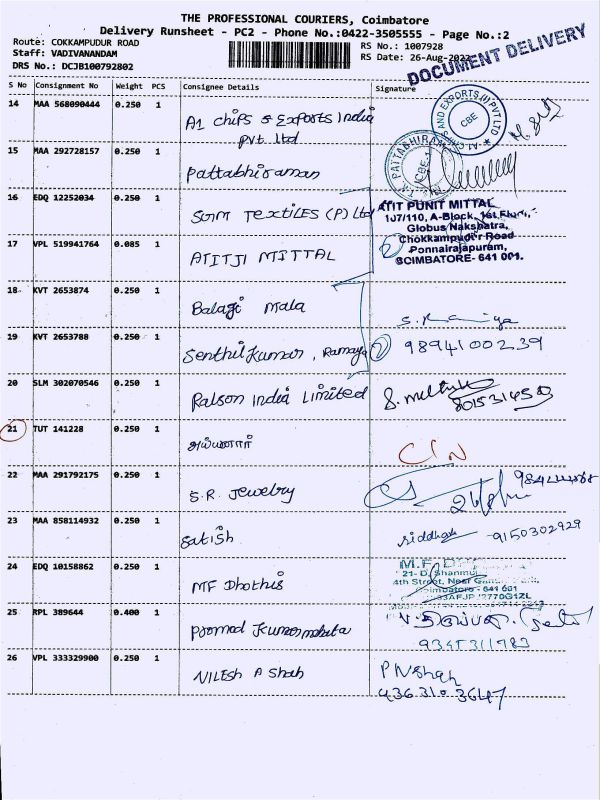 THE PROFESSIONAL COURIERS, Coimbatore
Delivery Runsheet - PC2 - Phone No.:0422-3505555 - Page No.:2
Route: COKKAMPUDUR ROAD
Staff: VADIVANANDAM
DRS No.: DCJB100792802
RS No.: 1007928
RS Date: 26-Aug-2022
DOCUMENT DELIVERY
S No Consignment No Weight PCS Consignee Details Signature
14 MAA 568090444 0.250 1 A1 chips & Exports India
Pvt. ltd
CBE
15 MAA 292728157 0.250 1 Pattabhiraman
16 EDQ 12252034 0.250 1 Sum TEXTILES (P) Ltd
17 VPL 519941764 0.085 1 ATITJI MITTAL
ATIT PUNIT MITTAL
107/110, A-Block, 1st Floor,
Globus Nakshatra,
Chokkampudur Road
Ponnairajapuram,
COIMBATORE- 641 001.
18 KVT 2653874 0.250 1 Balaji Mala
19 KVT 2653788 0.250 1 Senthil Kumar, Ramaya
9894100239
20 SLM 302070546 0.250 1 Ralson India Limited
21 TUT 141228 0.250 1 அய்யனார்
22 MAA 291792175 0.250 1 S.R. Jewelry
23 MAA 858114932 0.250 1 Satish
siddharth -9150302929
24 EDQ 10158862 0.250 1 MF Dhothis
25 RPL 389644 0.400 1 Promod Kumar mehata
9345311983
26 VPL 333329900 0.250 1 NILESH P Shah
PNShah
936310 3647